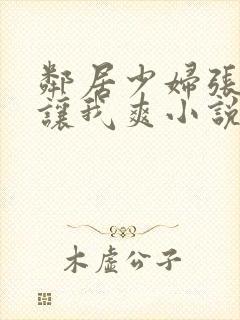 鄰居少婦張
讓我爽小說
木虛公子